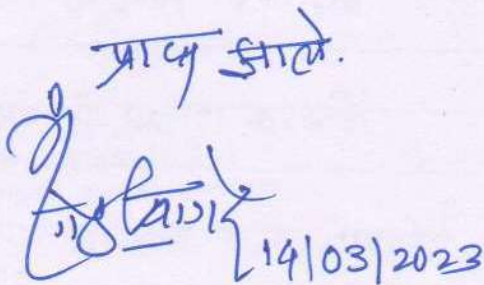 प्राप्त झाले.
14/03/2023